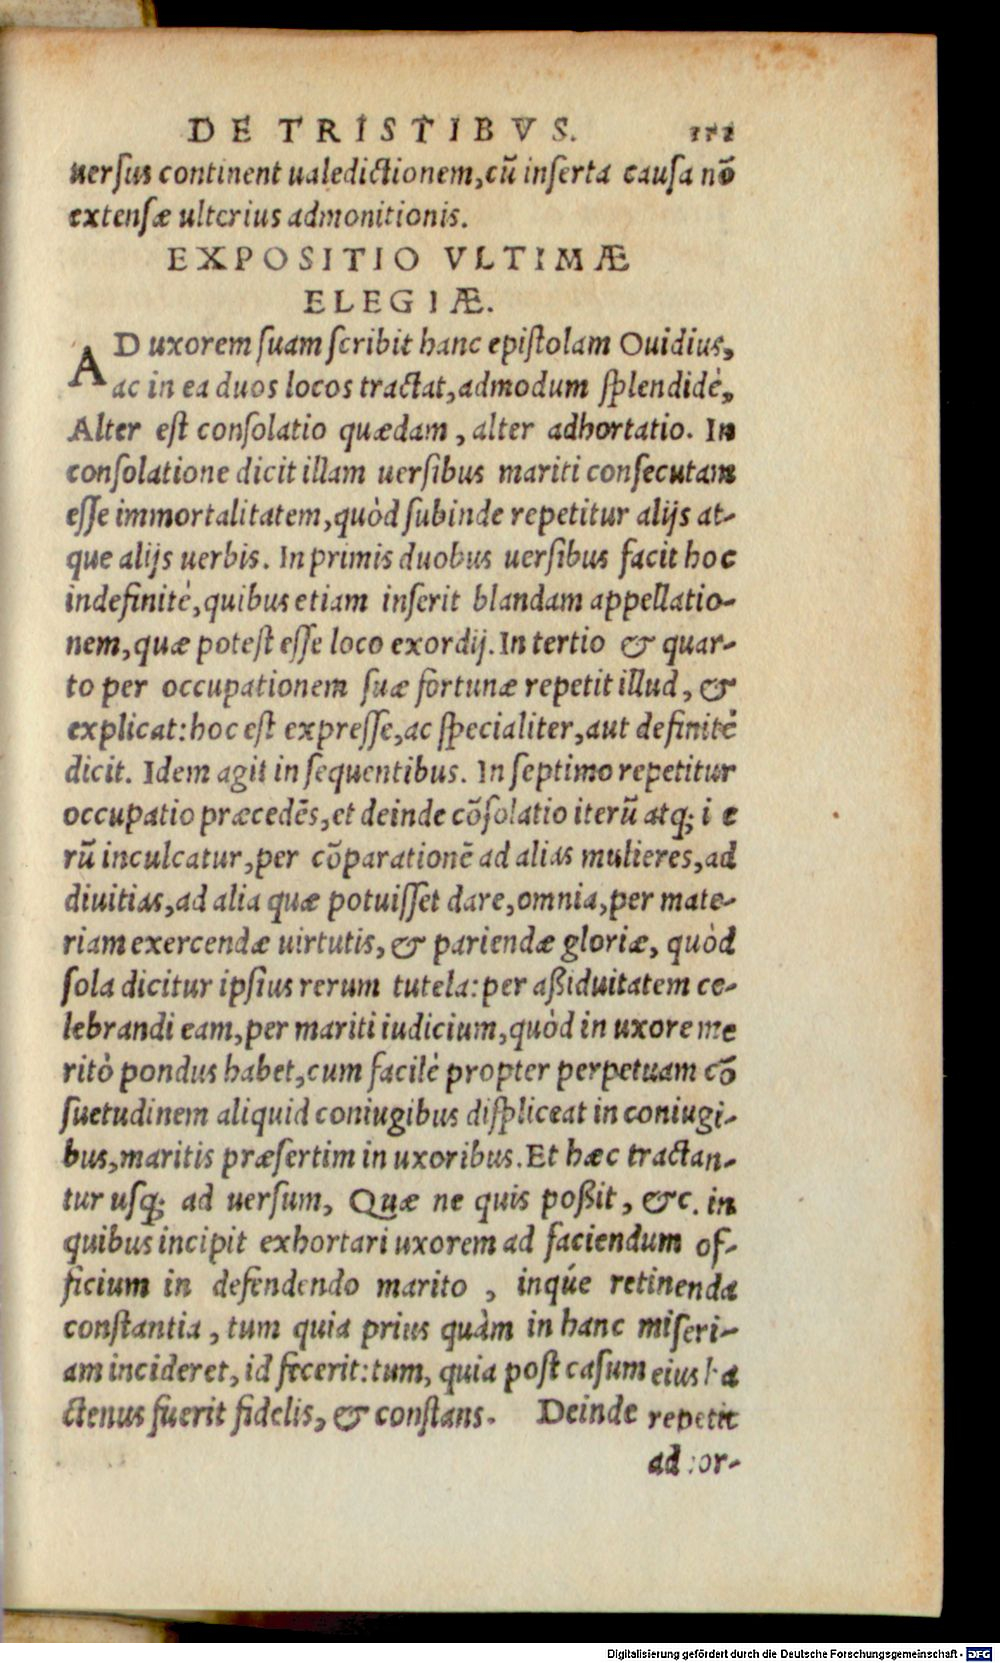 DE TRISTIBVS. 152
uersus continent ualedictionem, cū inserta causa nō
extensæ ulterius admonitionis.
EXPOSITIO VLTIMÆ
ELEGIÆ.
AD uxorem suam scribit hanc epistolam Ouidius,
ac in ea duos locos tractat, admodum splendidè,
Alter est consolatio quædam, alter adhortatio. In
consolatione dicit illam uersibus mariti consecutam
esse immortalitatem, quòd subinde repetitur alijs at-
que alijs uerbis. In primis duobus uersibus facit hoc
indefinitè, quibus etiam inserit blandam appellatio-
nem, quæ potest esse loco exordij. In tertio & quar-
to per occupationem suæ fortunæ repetit illud, &
explicat: hoc est expresse, ac specialiter, aut definitè
dicit. Idem agit in sequentibus. In septimo repetitur
occupatio præcedēs, et deinde cōsolatio iterū atq; i e
rū inculcatur, per cōparationē ad alias mulieres, ad
diuitias, ad alia quæ potuisset dare, omnia, per mate-
riam exercendæ uirtutis, & pariendæ gloriæ, quòd
sola dicitur ipsius rerum tutela: per aßiduitatem ce-
lebrandi eam, per mariti iudicium, quòd in uxore me
ritò pondus habet, cum facilè propter perpetuam cō
suetudinem aliquid coniugibus displiceat in coniugi-
bus, maritis præsertim in uxoribus. Et hæc tractan-
tur usq; ad uersum, Quæ ne quis poßit, &c. in
quibus incipit exhortari uxorem ad faciendum of-
ficium in defendendo marito, inqúe retinenda
constantia, tum quia prius quàm in hanc miseri-
am incideret, id fecerit: tum, quia post casum eius ha
ctenus fuerit fidelis, & constans. Deinde repetit
ad or-
Digitalisierung gefördert durch die Deutsche Forschungsgemeinschaft - DFG